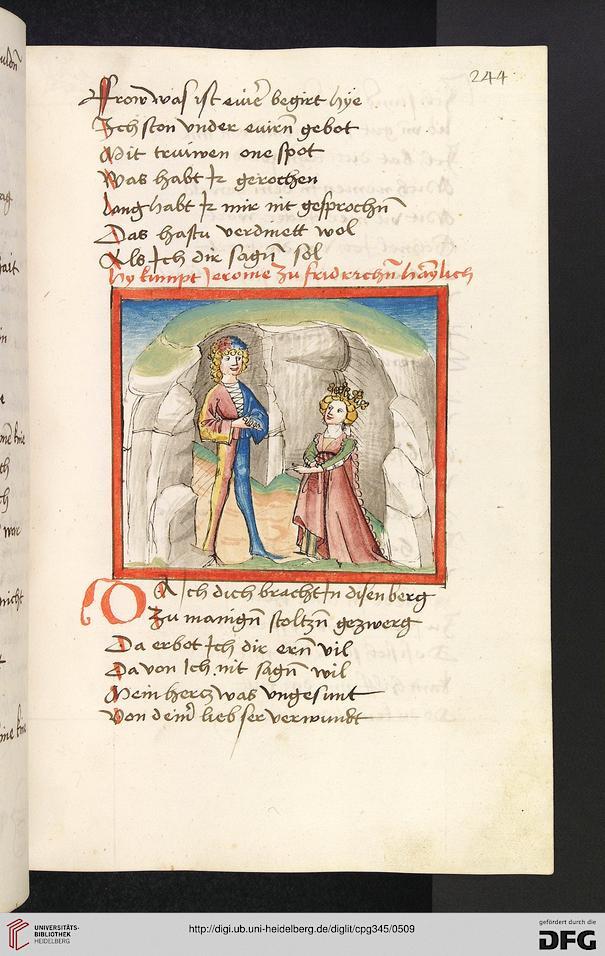 244
Frow was ist ewer begirt hye
Ich ston vnder euwrn gebot
Mit truiwen one spot
Was habt Ir gerochen
lang habt Ir mir nit gesprochn
Das hastu verdinett wol
Als Ich dir sagn sol
hy kumpt Jerome zu fridrichn haÿlich
Do Ich dich bracht In disen berg
Zu manign stoltzn gezwerg
Da erbot Ich dir ern vil
Da von Ich nit sagn wil
Mein hertz was vngesunt
Von deinr lieb ser verwundt
UNIVERSITÄTS-
BIBLIOTHEK
HEIDELBERG
http://digi.ub.uni-heidelberg.de/diglit/cpg345/0509
gefördert durch die
DFG